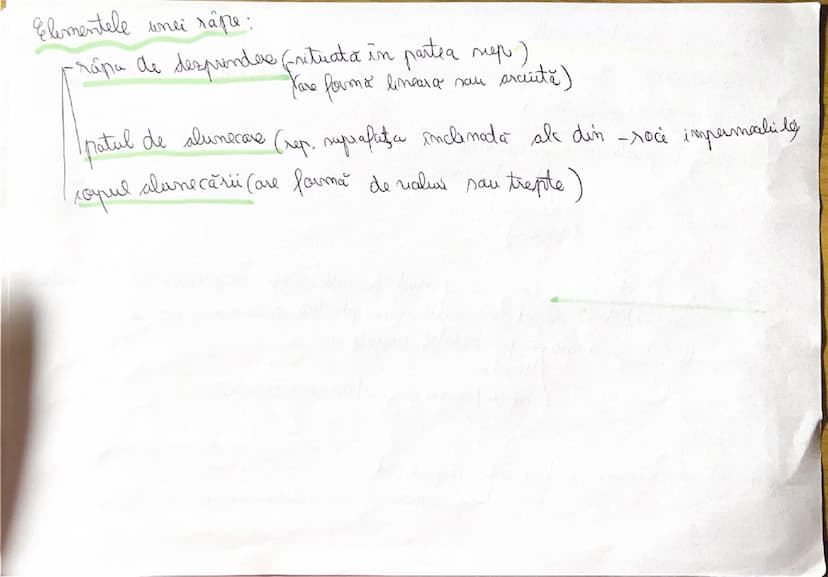 Elementele unei râpe:
- râpa de desprindere (-situată în partea sup)
(are formă lineara sau arcuită)
patul de alunecare (rep. suprafața inclinată alc din - roci impermeabile)
corpul alunecării (are formă de valuri sau trepte)